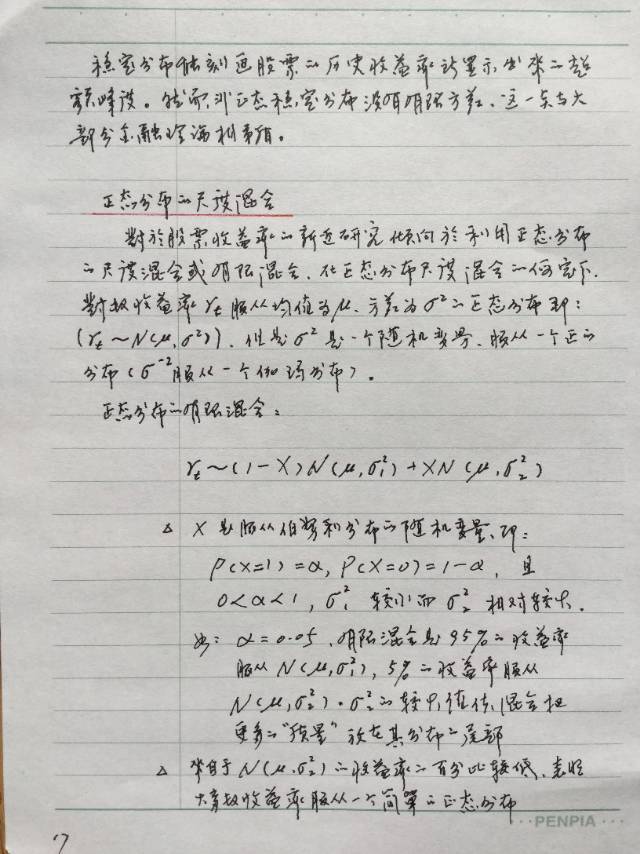 稳定分布能刻画股票的历史收益率所显示出来的超
额峰度。然而非正态稳定分布没有有限方差,这一点与大
部分金融理论相矛盾。
正态分布的尺度混合
對於股票收益率的新近研究倾向於利用正态分布
的尺度混合或有限混合。在正态分布尺度混合的假定下,
對数收益率 rt 服从均值为μ、方差为σ²的正态分布即:
(rt ~ N(μ, σ²)),但是σ²是一个随机变量、服从一个正的
分布(σ⁻²服从一个伽玛分布)。
正态分布的有限混合:
rt ~ (1-X)N(μ, σ₁²) + XN(μ, σ₂²)
△ X是服从伯努利分布的随机变量、即:
P(X=1)=α, P(X=0)=1-α, 且
0<α<1, σ₁² 较小而 σ₂² 相对较大.
如: α=0.05、有限混合是95%的收益率
服从 N(μ, σ₁²), 5%的收益率服从
N(μ, σ₂²)。σ₂²的较大值使混合把
更多的"质量"放在其分布的尾部
△ 来自于 N(μ, σ₂²)的收益率的百分比较低、表明
大多数收益率服从一个简單的正态分布
PENPIA
17